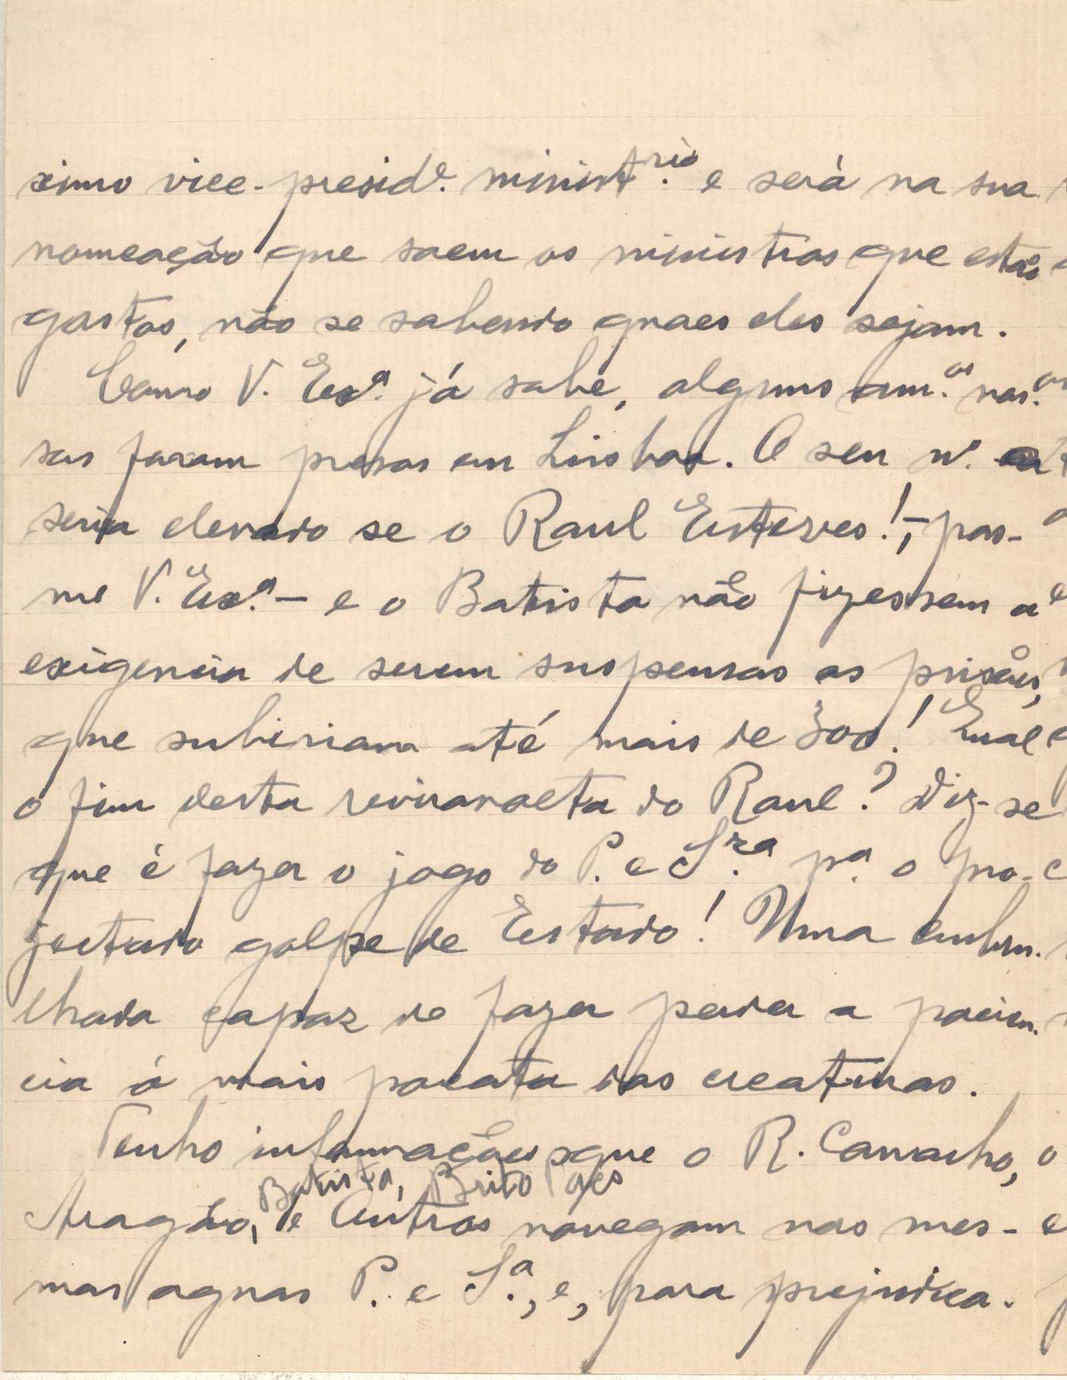 ximo vice-presid.e minist.rio e será na sua
nomeação que saem os ministros que estão
gastos, não se sabendo quaes eles sejam.
Como V. Ex.a já sabe, alguns am.os nos-
sos foram presos em Lisboa. O seu n.o
seria elevado se o Raul Esteves!, - pas-
me V. Ex.a - e o Batista não fizessem a
exigencia de serem suspensas as prisões,
que subiriam até mais de 300! Qual
o fim desta reviravolta do Raul? Diz-se
que é fazer o jogo do P. e S.ra p.a o pro-
jectado golpe de Estado! Uma embru-
lhada capaz de fazer perder a pacien-
cia á mais pacata das creaturas.
Tenho informações que o R. Camacho, o
Batista, Brito Pais
Aragão, e outros navegam nas mes-
mas aguas P. e S.a, e, para prejudica-